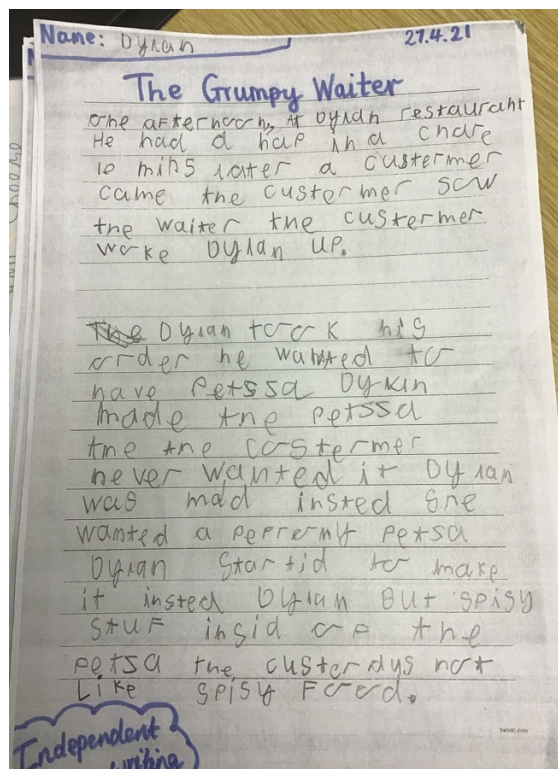 Name: Dylan
27.4.21
The Grumpy Waiter
one afternoon, At Dylan restaurant
He had a nap in a chare
10 mins later a custermer
came the custermer scw
the waiter the custermer
woke Dylan up.
The Dylan took his
order he wanted to
have Petssa Dylan
made the petssa
the the costermer
never wanted it Dylan
was mad insted She
wanted a pepreny petsa
Dylan Startid to make
it insted Dylan But spisy
stuf insid of the
petsa the custerdys not
Like spisy Food.
Independent
writing